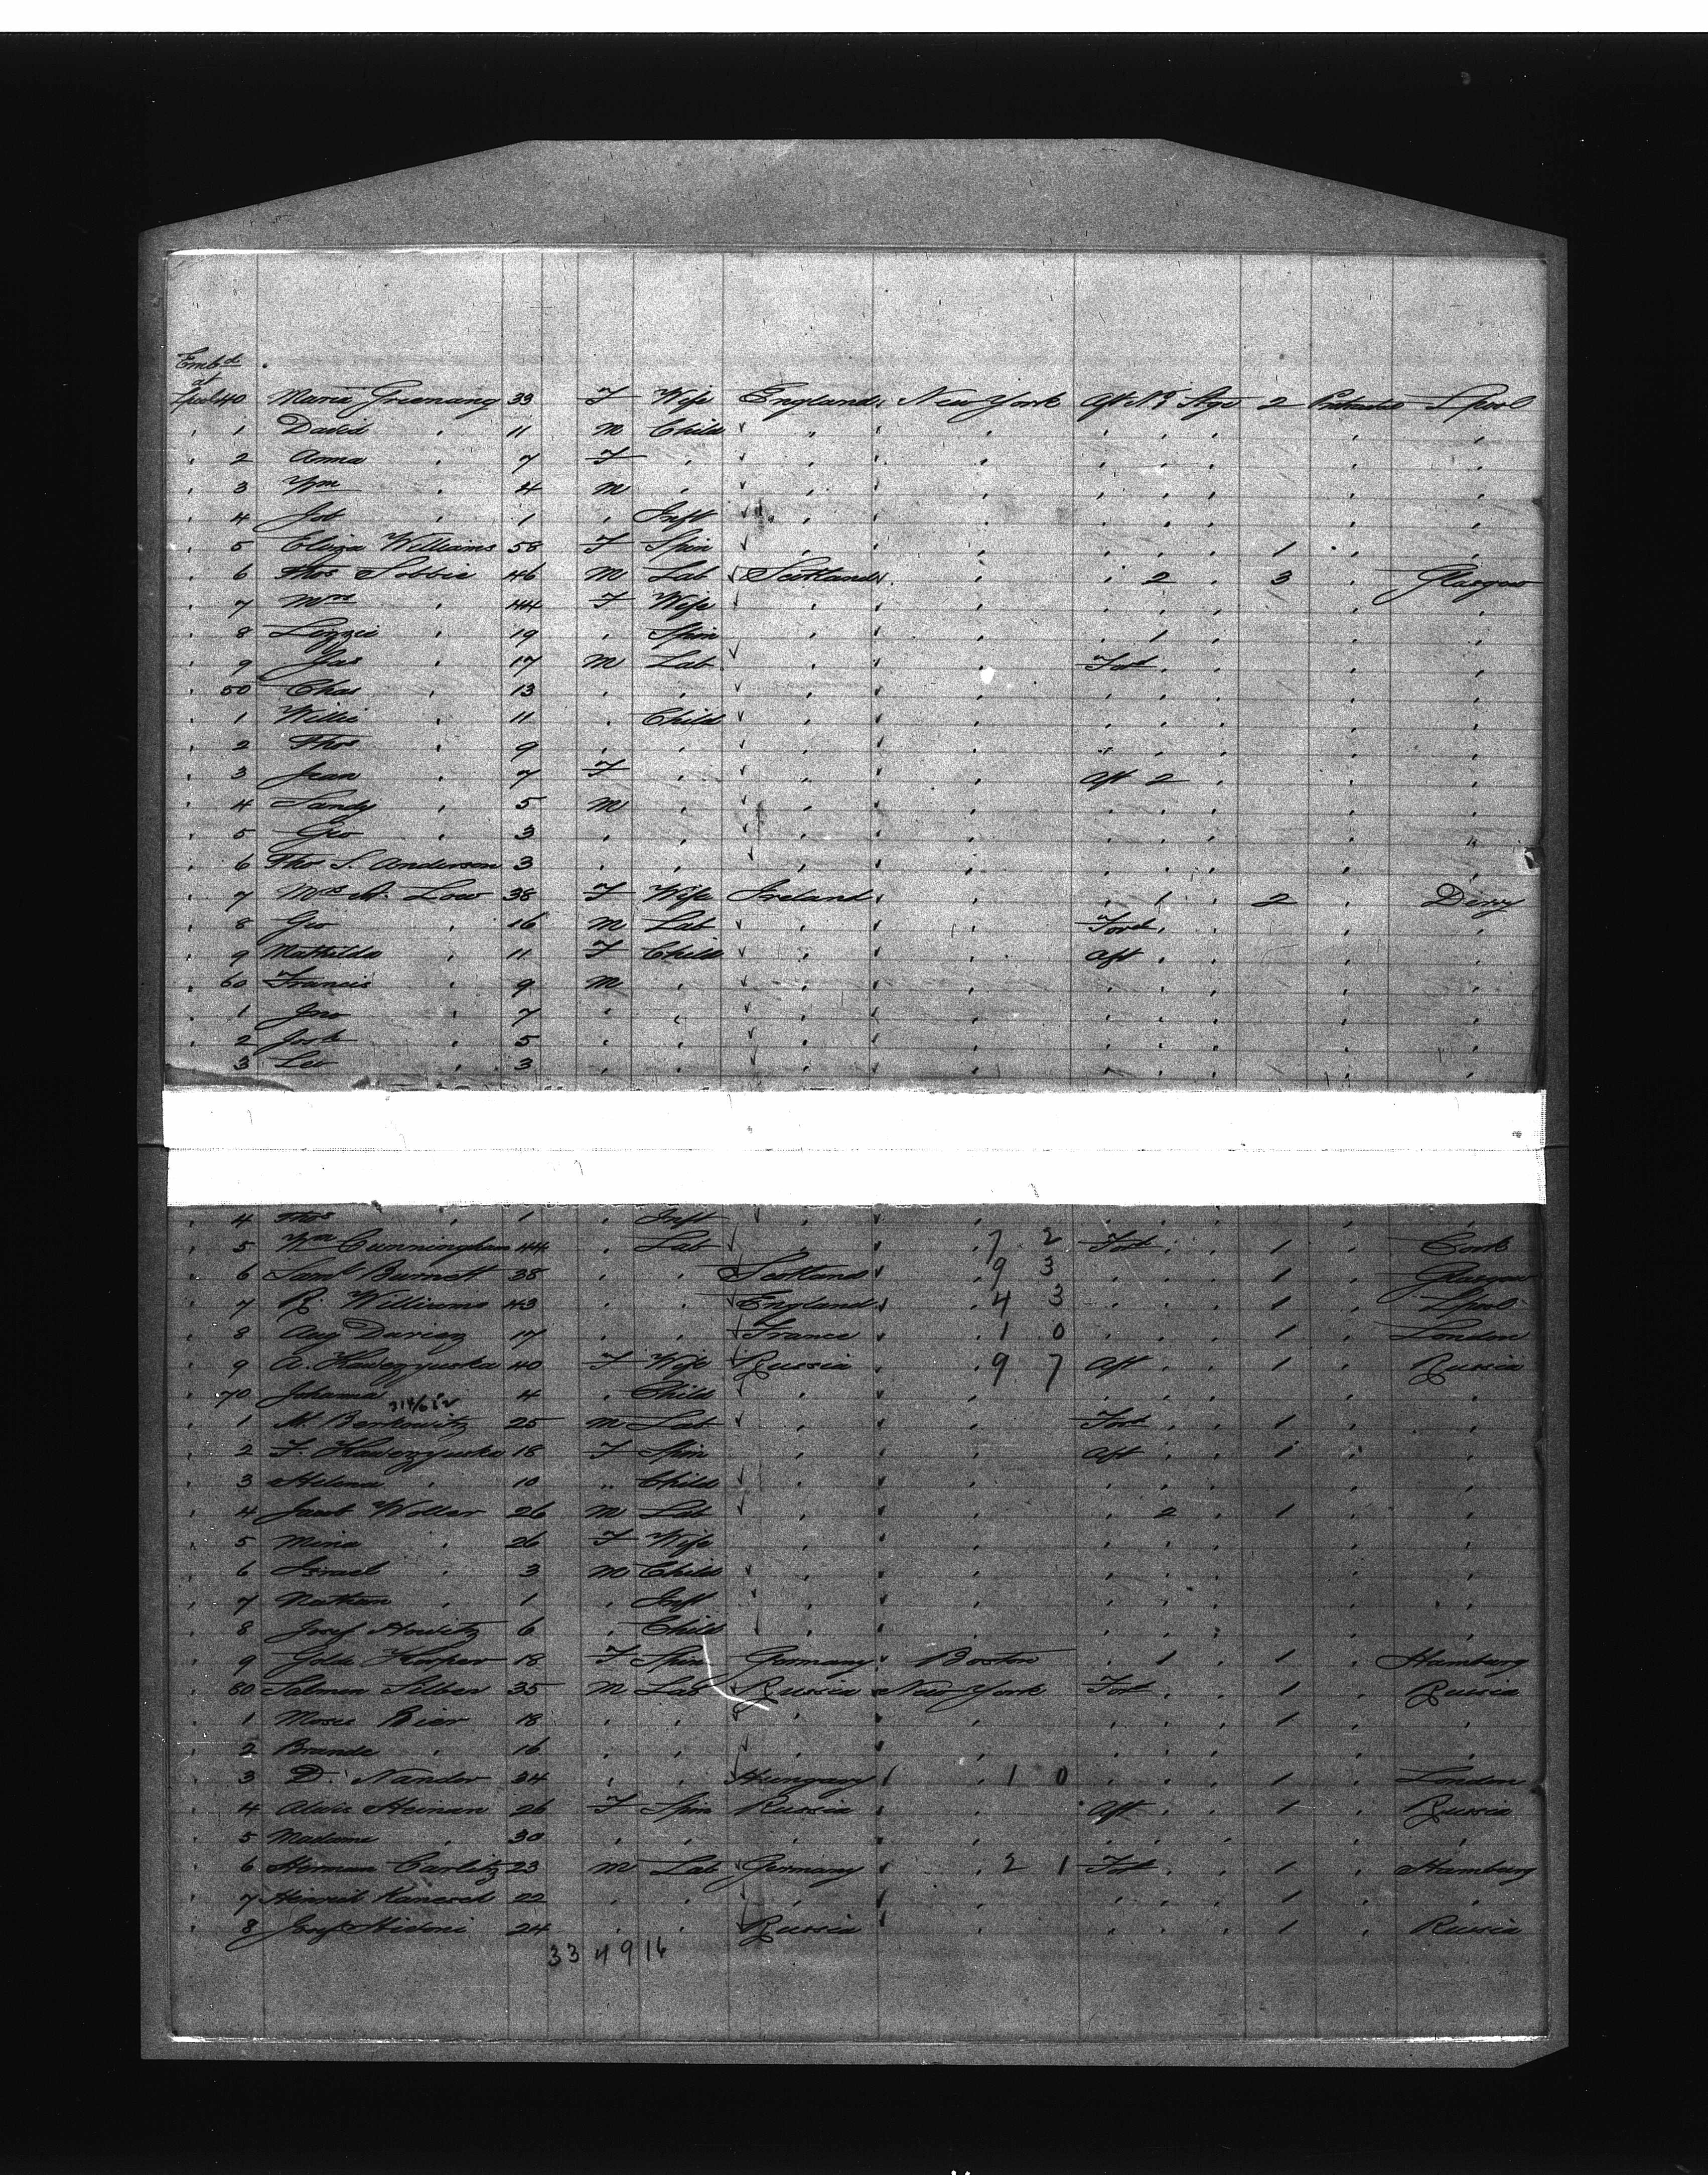 Emb^d
at
Lpool 40 Maria Grienang 33 F Wife England New York Aft N° 2 Stge 2 Protracted Lpool
" 1 David " 11 M Child " " " " " " "
" 2 Anna " 7 F " " " " " " " "
" 3 Wm " 4 M " " " " " " " "
" 4 Job " 1 " Inft " " " " " " "
" 5 Eliza Williams 58 F Spin " " " " " 1 " "
" 6 Thos Lobbie 46 M Lab Scotland " " 2 " 3 " Glasgow
" 7 Mrs " 44 F Wife " " " " " " "
" 8 Lizzie " 19 " Spin " " " 1 " " "
" 9 Jas " 17 M Lab " " Ford " " " "
" 50 Chas " 13 " " " " " " " " "
" 1 Willie " 11 " Child " " " " " " "
" 2 Thos " 9 " " " " " " " " "
" 3 Jean " 7 F " " " Aft 2 " " "
" 4 Sandy " 5 M " " " " " " " "
" 5 Geo " 3 " " " " " " " " "
" 6 Thos S. Anderson 3 " " " " " " " " "
" 7 Mrs A. Low 38 F Wife Ireland " " 1 " 2 " Derry
" 8 Geo " 16 M Lab " " Ford " " " "
" 9 Mathilda " 11 F Child " " Aft " " " "
" 60 Francis " 9 M " " " " " " " "
" 1 Jno " 7 " " " " " " " " "
" 2 Josh " 5 " " " " " " " " "
" 3 Leo " 3 " " " " " " " " "
" 4 Thos " 1 " Inft " "
" 5 Wm Cunningham 44 " Lab " " 7 2 Ford " " 1 " Cork
" 6 Saml Burnett 38 " " Scotland " 9 3 " " " 1 " Glasgow
" 7 R. Williams 43 " " England " 4 3 " " " 1 " Lpool
" 8 Aug Duriez 17 " " France " 1 0 " " " 1 " London
" 9 A. Hawezyuska 40 F Wife Russia " 9 7 Aft " " 1 " Russia
" 70 Johanna 4 " Child " " " " " " "
" 1 M. Berkowitz 25 M Lab " " Ford " " 1 " "
" 2 F. Hawezyuska 18 F Spin " " Aft " " 1 " "
" 3 Helena " 10 " Child " " " " " " "
" 4 Jacob Woller 26 M Lab " " " 2 " 1 " "
" 5 Mina " 26 F Wife " " " " " " "
" 6 Israel " 3 M Child " " " " " " "
" 7 Nathan " 1 " Inft " " " " " " "
" 8 Josef Howitz 6 " Child " " " " " " "
" 9 Golde Korper 18 F Spin Germany Boston " 1 " 1 " Hamburg
" 80 Salomon Silber 35 M Lab Russia New York Ford " " 1 " Russia
" 1 Moses Bier 18 " " " " " " " 1 " "
" 2 Brande " 16 " " " " " " " " "
" 3 D. Nandor 34 " " Hungary " 1 0 " " " 1 " London
" 4 Alwie Heinan 26 F Spin Russia " Aft " " 1 " Russia
" 5 Madame " 30 " " " " " " " " "
" 6 Herman Carlitz 23 M Lab Germany " 2 1 Ford " " 1 " Hamburg
" 7 Heinrich Kanesch 22 " " " " " " " 1 " "
" 8 Josef Hidoni 24 " " Russia " " " " 1 " Russia
33 49 16